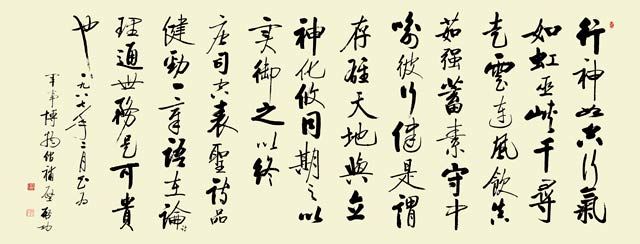 行神如空行氣
如虹巫峽千尋
走雲連風飲真
茹强蓄素守中
喻彼行健是謂
存雄天地與立
神化攸同期之以
實御之以終
唐司空表聖詩品
健勁一章語在論詩
理通世務是可貴
也 一九八七年三月书为
軍事博物館補壁 啟功